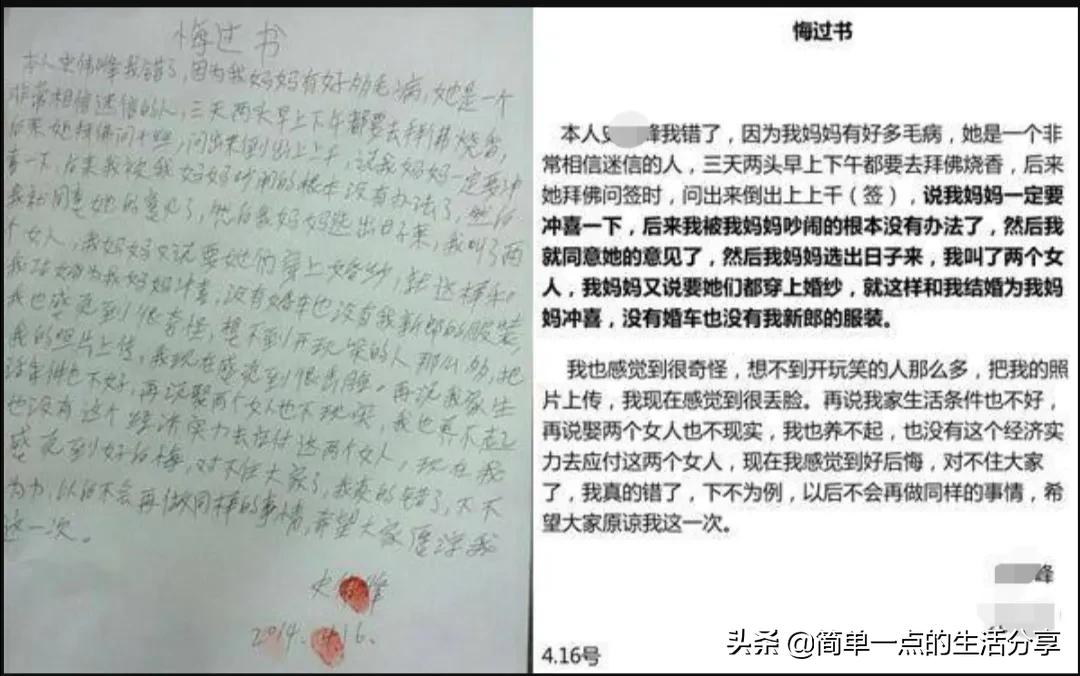 悔过书
本人史伟峰我错了，因为我妈妈有好多毛病，她是一个
非常相信迷信的人，三天两头早上下午都要去拜佛烧香，
后来她拜佛问千时，问出来倒出上上千，说我妈妈一定要冲
喜一下，后来我被我妈妈吵闹的根本没有办法了，然后
我就同意她的意见了，然后我妈妈选出日子来，我叫了两
个女人，我妈妈又说要她们穿上婚纱，就这样和
我结婚为我妈妈冲喜，没有婚车也没有我新郎的服装，
我也感觉到很奇怪，想不到开玩笑的人那么多，把
我的照片上传，我现在感觉到很丢脸。再说我家生
活条件也不好，再说娶两个女人也不现实，我也养不起
也没有这个经济实力去应付这两个女人，现在我
感觉到好后悔，对不住大家了，我真的错了，下不
为例，以后不会再做同样的事情，希望大家原谅我
这一次。
史伟峰
2014.4.16.
悔过书
本人史峰我错了，因为我妈妈有好多毛病，她是一个非
常相信迷信的人，三天两头早上下午都要去拜佛烧香，后来
她拜佛问签时，问出来倒出上上千（签），说我妈妈一定要
冲喜一下，后来我被我妈妈吵闹的根本没有办法了，然后我
就同意她的意见了，然后我妈妈选出日子来，我叫了两个女
人，我妈妈又说要她们都穿上婚纱，就这样和我结婚为我妈
妈冲喜，没有婚车也没有我新郎的服装。
我也感觉到很奇怪，想不到开玩笑的人那么多，把我的照
片上传，我现在感觉到很丢脸。再说我家生活条件也不好，
再说娶两个女人也不现实，我也养不起，也没有这个经济实
力去应付这两个女人，现在我感觉到好后悔，对不住大家
了，我真的错了，下不为例，以后不会再做同样的事情，希
望大家原谅我这一次。
峰
4.16号
头条 @简单一点的生活分享